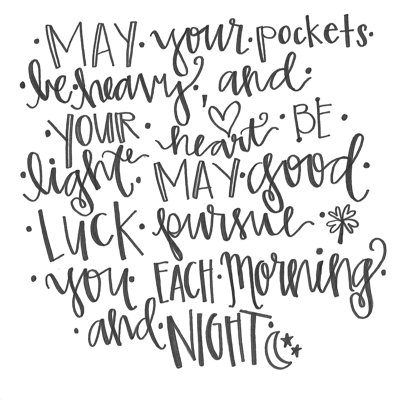 ·MAY·your·pockets·
·be·heavy, and
·YOUR· heart ·BE·
·light· MAY·good·
·LUCK·pursue·
·you·EACH·Morning·
·and·NIGHT·